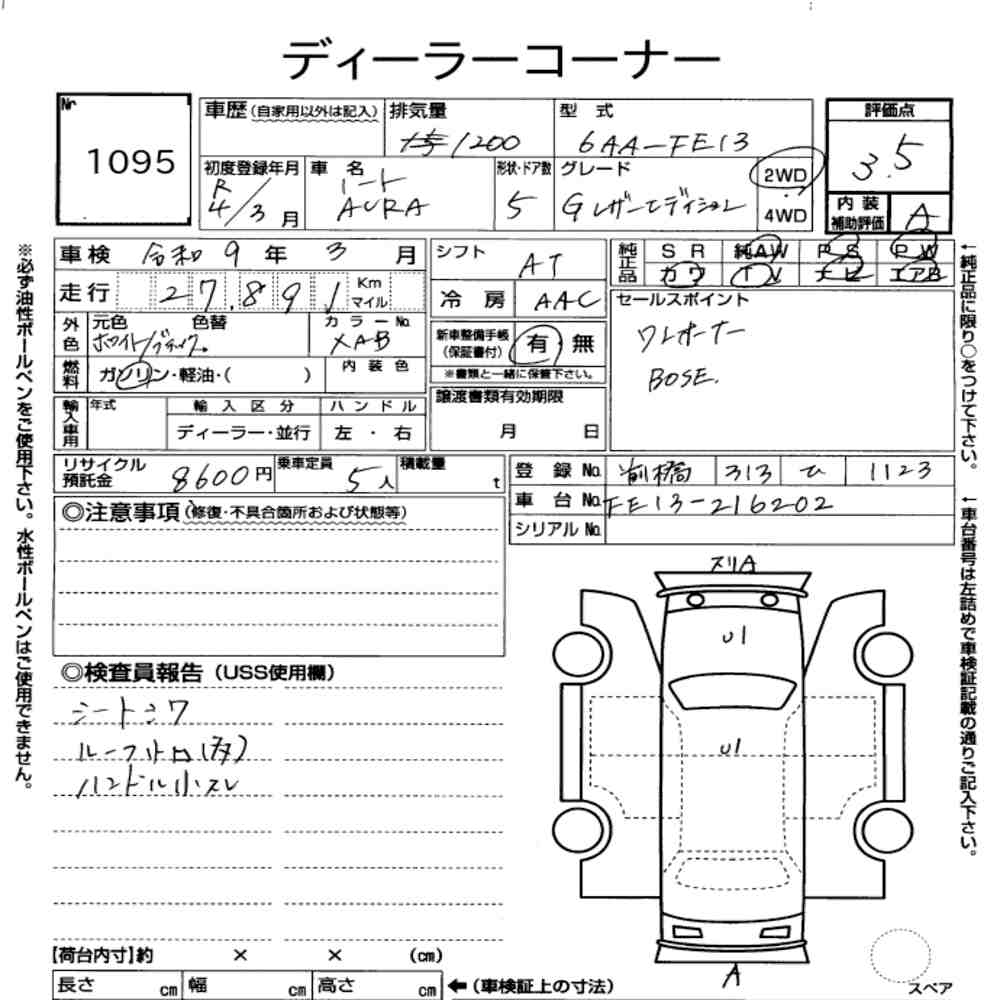 ディーラーコーナー
Nr
1095
車歴(自家用以外は記入)
排気量
1200
型 式
6AA-FE13
評価点
3.5
初度登録年月
R
4/3 月
車 名
ノート
AURA
形状・ドア数
5
グレード
G レザーエディション
2WD
4WD
内 装
補助評価
A
車 検 令和 9 年 3 月
走 行 27,891 Km
マイル
外色
元色 色替
ホワイト/ブラック
カラーNo.
XAB
燃料
ガソリン・軽油・( )
内 装 色
輸入車用
年式
輸 入 区 分
ディーラー・並行
ハ ン ド ル
左 ・ 右
シフト
AT
冷 房 AAC
新車整備手帳
(保証書付)
有・無
※書類と一緒に保管下さい。
譲渡書類有効期限
月 日
純正品
S R 純AW P S P W
カワ T V ナビ エアB
セールスポイント
ワンオーナー
BOSE.
リサイクル
預託金
8600円
乗車定員
5人
積載量
t
登 録 No. 前橋 313 ひ 1123
車 台 No. FE13-216202
シリアル No.
◎注意事項(修復・不具合箇所および状態等)
◎検査員報告(USS使用欄)
シートシワ
ルーフトロ(多)
ハンドル小スレ
スリA
U1
U1
A
スペア
【荷台内寸】約 × × (cm)
長さ cm 幅 cm 高さ cm
←(車検証上の寸法)
※必ず油性ボールペンをご使用下さい。水性ボールペンはご使用できません。
←純正品に限り○をつけて下さい。
←車台番号は左詰めで車検証記載の通りご記入下さい。